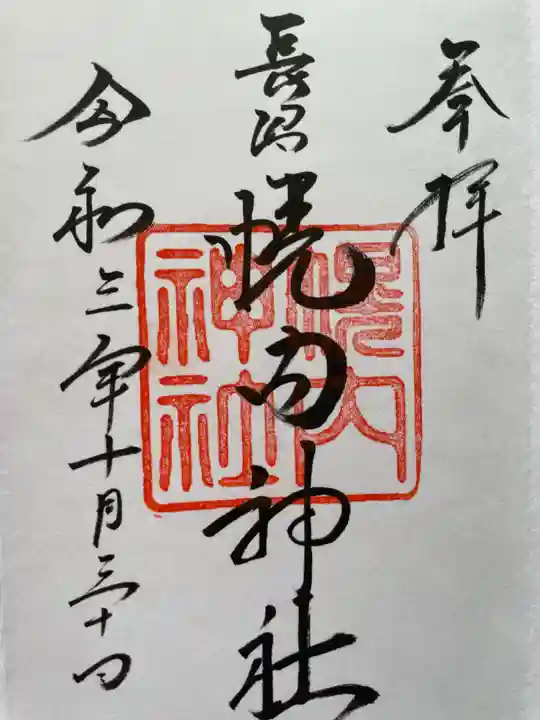 奉拝
長沼幌内神社
令和三年十月三十日
幌内
神社